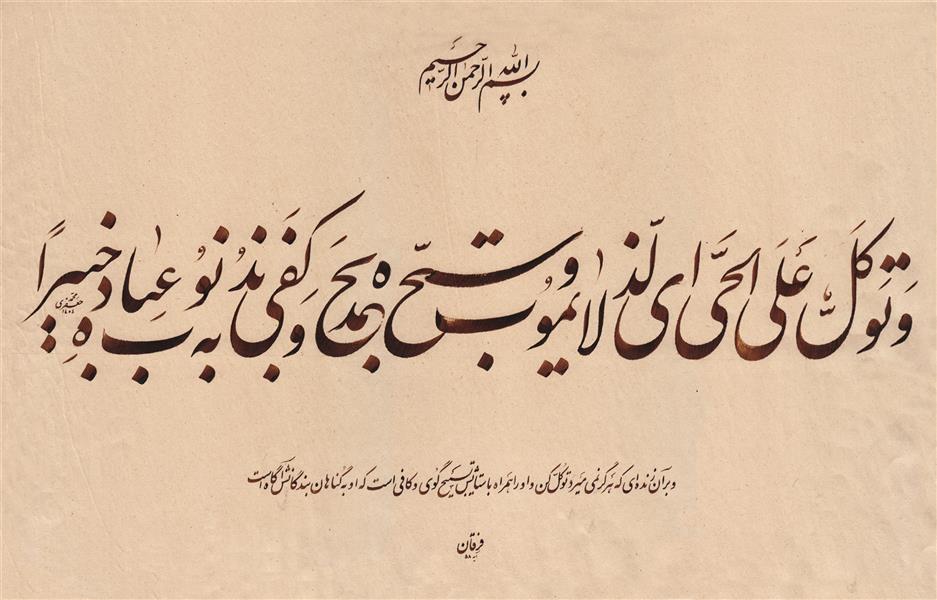 بسم الله الرحمن الرحیم
وَتَوَكَّلْ عَلَى الحَيِّ الَّذي لا يموت وسبّح بحمده وَكَفى به بذُنُوب عِبادهِ خبيراً
و بر آن زنده‌ای که هرگز نمی میرد توکّل کن و او را همراه با ستایش تسبیح گوی و کافی است که او به گناهان بندگانش آگاه است
فرقان
آیه ۵۸